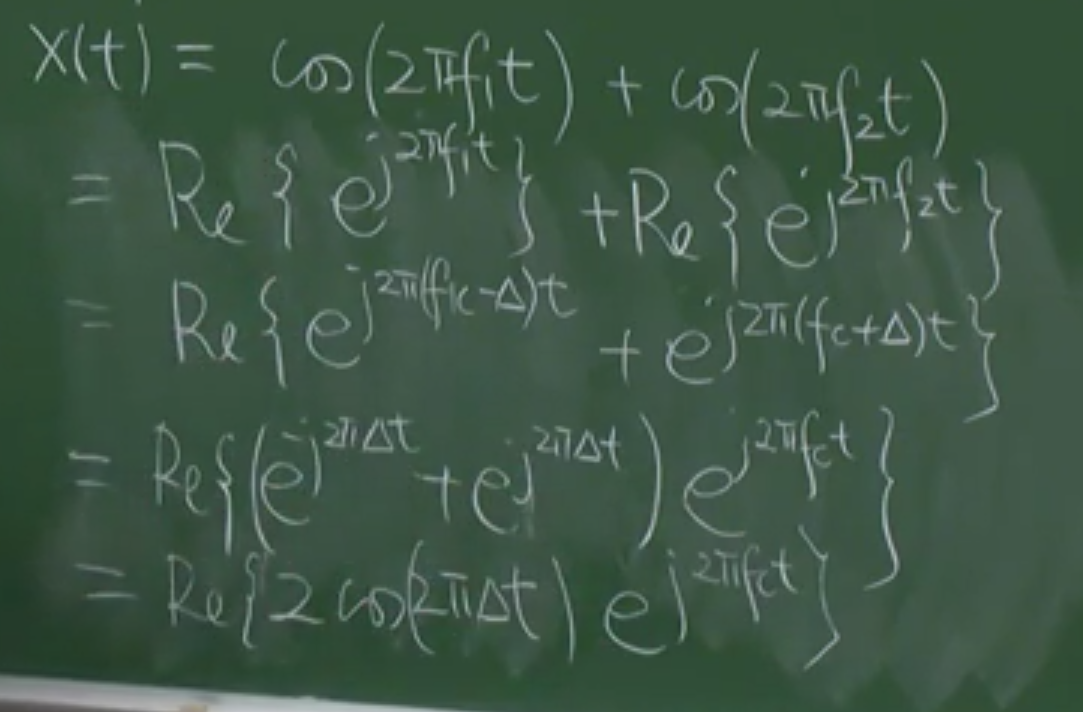 x(t) = cos(2πf₁t) + cos(2πf₂t)
= Re{e^{j2πf₁t}} + Re{e^{j2πf₂t}}
= Re{e^{j2π(fc-Δ)t} + e^{j2π(fc+Δ)t}}
= Re{(e^{-j2πΔt} + e^{j2πΔt}) e^{j2πfct}}
= Re{2cos(2πΔt) e^{j2πfct}}